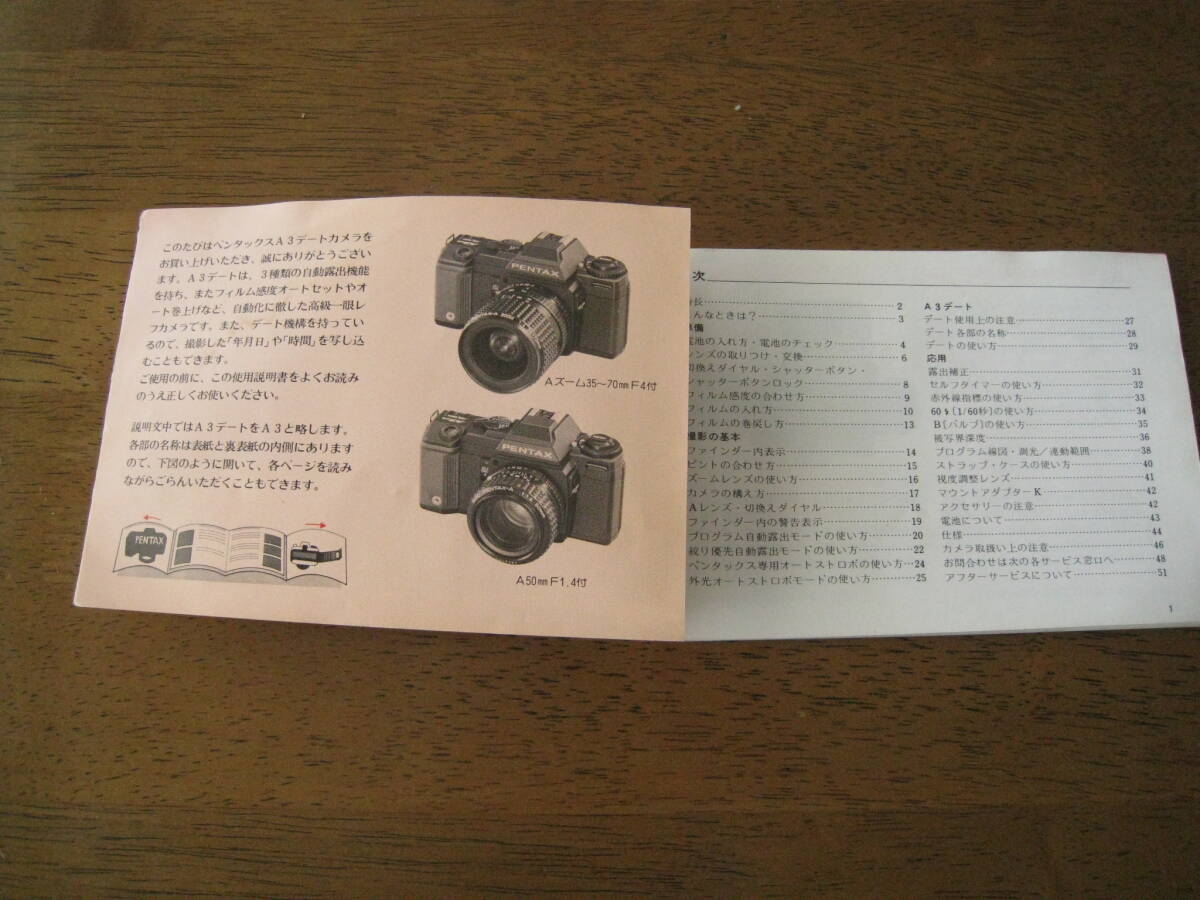 このたびはペンタックスA3デートカメラを
お買い上げいただき、誠にありがとうござい
ます。A3デートは、3種類の自動露出機能
を持ち、またフィルム感度オートセットやオ
ート巻上げなど、自動化に徹した高級一眼レ
フカメラです。また、デート機構を持ってい
るので、撮影した「年月日」や「時間」を写し込
むこともできます。
ご使用の前に、この使用説明書をよくお読み
のうえ正しくお使いください。
説明文中ではA3デートをA3と略します。
各部の名称は表紙と裏表紙の内側にあります
ので、下図のように開いて、各ページを読み
ながらごらんいただくこともできます。
PENTAX
PENTAX
Aズーム35～70mm F4付
PENTAX
PENTAX-A
A50mm F1.4付
次
特長 2
んなときは? 3
準備
電池の入れ方・電池のチェック 4
レンズの取りつけ・交換 6
切換えダイヤル・シャッターボタン・
シャッターボタンロック 8
フィルム感度の合わせ方 9
フィルムの入れ方 10
フィルムの巻戻し方 13
撮影の基本
ファインダー内表示 14
ピントの合わせ方 15
ズームレンズの使い方 16
カメラの構え方 17
Aレンズ・切換えダイヤル 18
ファインダー内の警告表示 19
プログラム自動露出モードの使い方 20
絞り優先自動露出モードの使い方 22
ペンタックス専用オートストロボの使い方…24
外光オートストロボモードの使い方 25
A3デート
デート使用上の注意 27
デート各部の名称 28
デートの使い方 29
応用
露出補正 31
セルフタイマーの使い方 32
赤外線指標の使い方 33
60⚡[1/60秒]の使い方 34
B[バルブ]の使い方 35
被写界深度 36
プログラム線図・測光/連動範囲 38
ストラップ・ケースの使い方 40
視度調整レンズ 41
マウントアダプターK 42
アクセサリーの注意 42
電池について 43
仕様 44
カメラ取扱い上の注意 46
お問合わせは次の各サービス窓口へ 48
アフターサービスについて 51
1